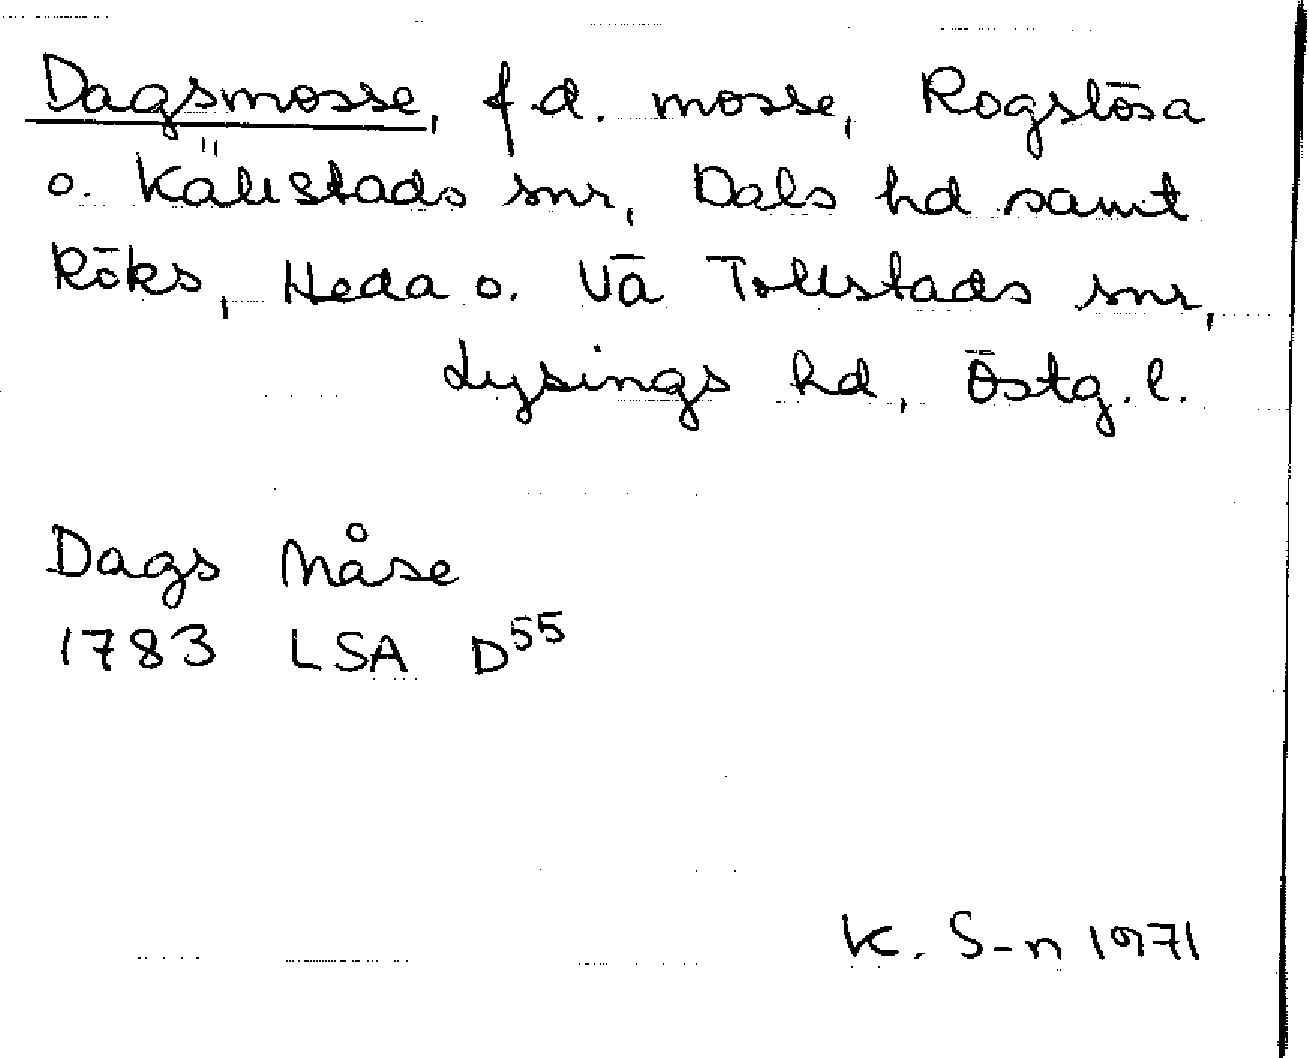 Dagsmosse, f.d. mosse, Rogslösa
o. Källstads snr, Dals hd samt
Röks, Heda o. Vä Tollstads snr,
Lysings hd, Östg. l.
Dags Måse
1783 LSA D55
K. S-n 1971